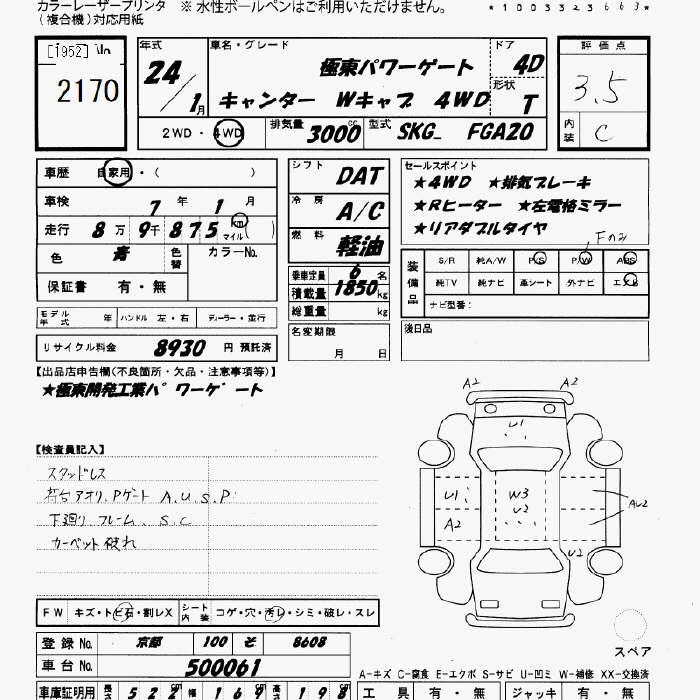 カラーレーザープリンタ ※ 水性ボールペンはご利用いただけません。 *1003323663*
(複合機)対応用紙
[1952] No
2170
年式 24/1月
車名・グレード 極東パワーゲート
キャンター Wキャブ 4WD
ドア 4D
形状 T
評価点 3.5
内装 C
2WD・4WD 排気量 3000cc 型式 SKG_ FGA20
車歴 自家用・( )
車検 7年 1月
走行 8万9千875 km マイル ( )
色 青 色替 カラーNo.
保証書 有・無
シフト DAT
冷房 A/C
燃料 軽油
乗車定員 6名
積載量 1850kg
総重量 kg
セールスポイント
★4WD ★排気ブレーキ
★Rヒーター ★左電格ミラー
★リアダブルタイヤ
Fのみ
装備品 S/R 純A/W P/S P/W ABS
純TV 純ナビ 革シート 外ナビ エアB
ナビ型番:
モデル年式 年 ハンドル 左・右 ディーラー・並行
名変期限 月 日
後日品
リサイクル料金 8930 円 預託済
【出品店申告欄(不良箇所・欠品・注意事項等)】
★極東開発工業パワーゲート
A2 A2
U1
U1 W3
U2
A2 AU2
U2
スペア
【検査員記入】
スタッドレス
荷台アオリ、Pゲート A.U.S.P
下廻り、フレーム、S.C
カーペット破れ
FW キズ・トビ石・割レX シート内装 コゲ・穴・汚レ・シミ・破レ・スレ
登録No. 京都 100 そ 8608
車台No. 500061
A-キズ C-腐食 E-エクボ S-サビ U-凹ミ W-補修 XX-交換済
車庫証明用 長さ 522cm 幅 169cm 高さ 198cm 工具 有・無 ジャッキ 有・無